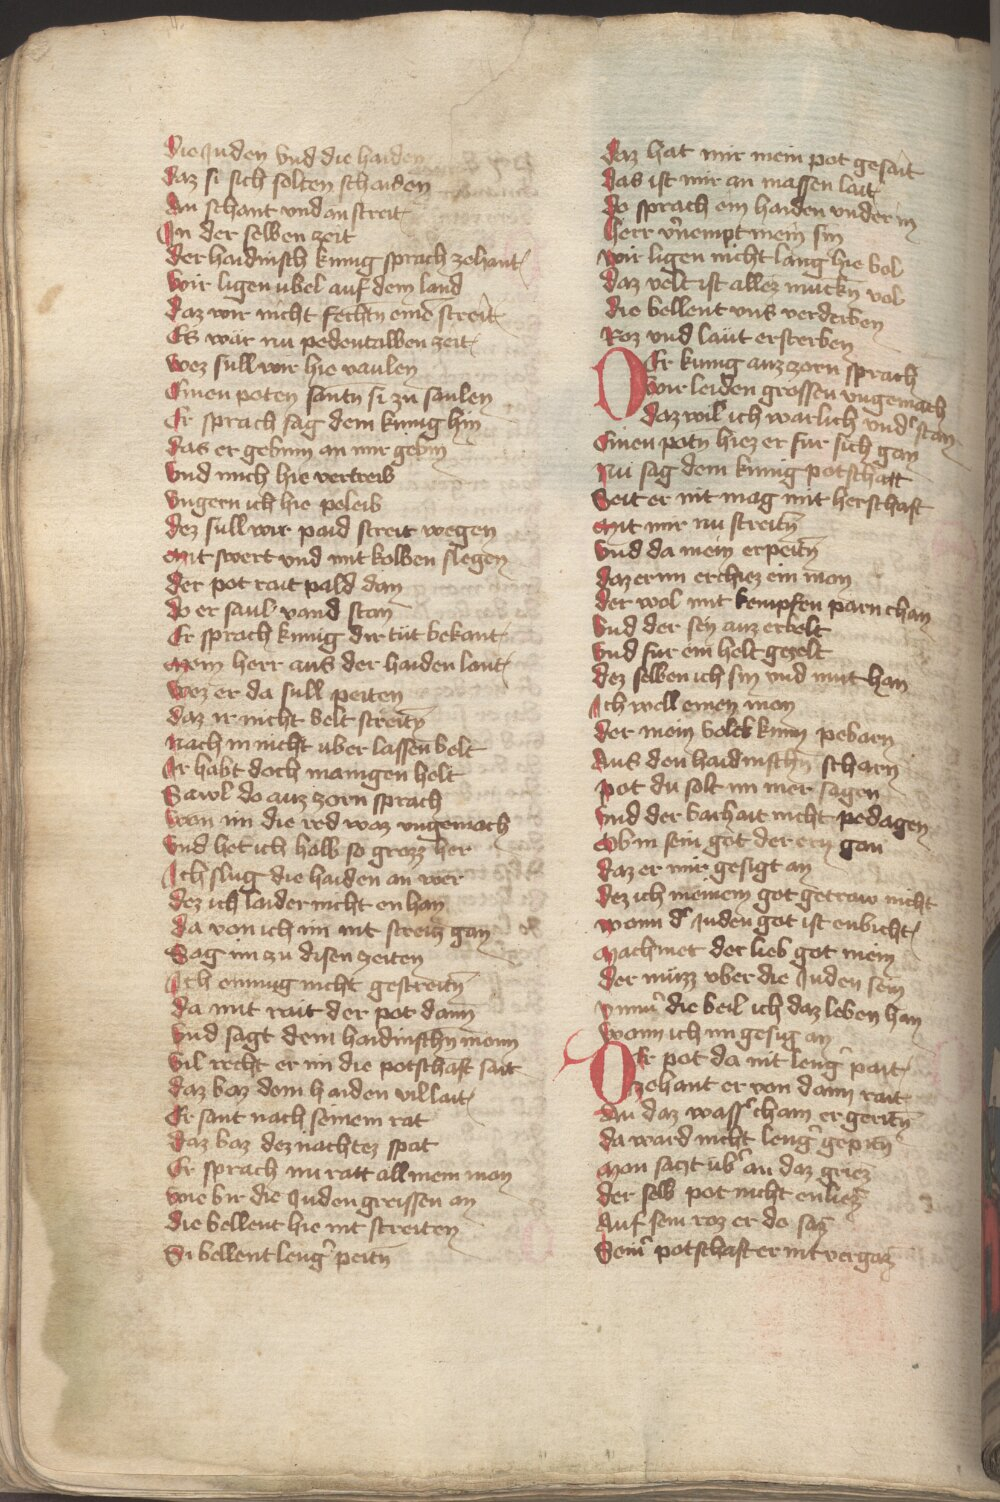 Die Juden vnd die haiden
Daz si sich solten schaiden
An schant vnd an streit
In der selben zeit
Der haidnisch kunig sprach zehant
Wir ligen ubel auf dem land
Daz wir nicht fechtn einē streit
Es wär nu pedentalben zeit
Wez sull wir hie vaulen
Einen poten santn si zu saulen
Er sprach sag dem kunig hin
Das er gebinn an mir gebin
Vnd mich hie vertreib
Vngern ich hie peleib
Dez sull wir paid streit wegen
Mit swert vnd mit kolben slegen
Der pot rait pald dan
Do er saul vand stan
Er sprach kunig dir tüt bekant
Mein herr aus der haiden lant
Wez er da sull peiten
Daz ir nicht belt streitn
Nach in nicht uber lassen belt
Ir habt doch manigen helt
Sawl do auz zorn sprach
Wan im die red waz vngemach
Vnd het ich halb so grozz her
Ich slug die haiden an wer
Dez ich laider nicht en han
Da von ich im nit streitz gan
Sag im zu disen zeiten
Ich enmug nicht gestreitn
Da mit rait der pot dann
Vnd sagt dem haidnischn mann
Vil recht er im die potschaft sait
Daz baz dem haiden vil lait
Er sant nach seinem rat
Daz baz dez nachtez spat
Er sprach nu ratt all mein man
Wie bir die Juden greiffen an
Die bellent hie nit streiten
Si bellent leng̾ peitn
Daz hat mir mein pot gesait
Das ist mir an massen lait
Do sprach ein haiden vnder in
Herr v̾nempt mein sin
Wir ligen nicht lang hie bol
Daz velt ist allez muckn vol
Die bellent vns verderben
Roz vnd läut ersterben
Der kunig auz zorn sprach
Wir leiden grossen vngemach
Daz wil ich warlich vnd̾stan
Einen potn hiez er fur sich gan
Nu sag dem kunig potschaft
Seit er nit mag mit herschaft
Mit mir nu streitn
Vnd da mein erpeitn
Daz er im erchiez ein man
Der wol mit kempfen parn chan
Vnd der sey auz erbelt
Vnd fur ein helt gezelt
Dez selben ich sin vnd mut han
Ich well einen man
Der mein bolck kunn pebarn
Aus den haidnischn scharn
Pot du solt im mer sagen
Vnd der barhait nicht pedagen
Ob in sein got der ern gan
Daz er mir gesigt an
Dez ich meinem got getraw nicht
Wann d̾ Juden got ist enbicht
Machmet der lieb got mein
Der müzz vber die Juden sein
Vnnm̾ die beil ich daz leben han
Wann ich im gesig an
Der pot da nit leng̾ pait
Zehant er von dann rait
An daz wass̾ cham er geritn
Da ward nicht leng̾ gepitn
Man sazt üb̾ an daz griez
Der selb pot nicht enliez
Auf sein roz er do saz
Sein̾ potschaft er nit vergaz